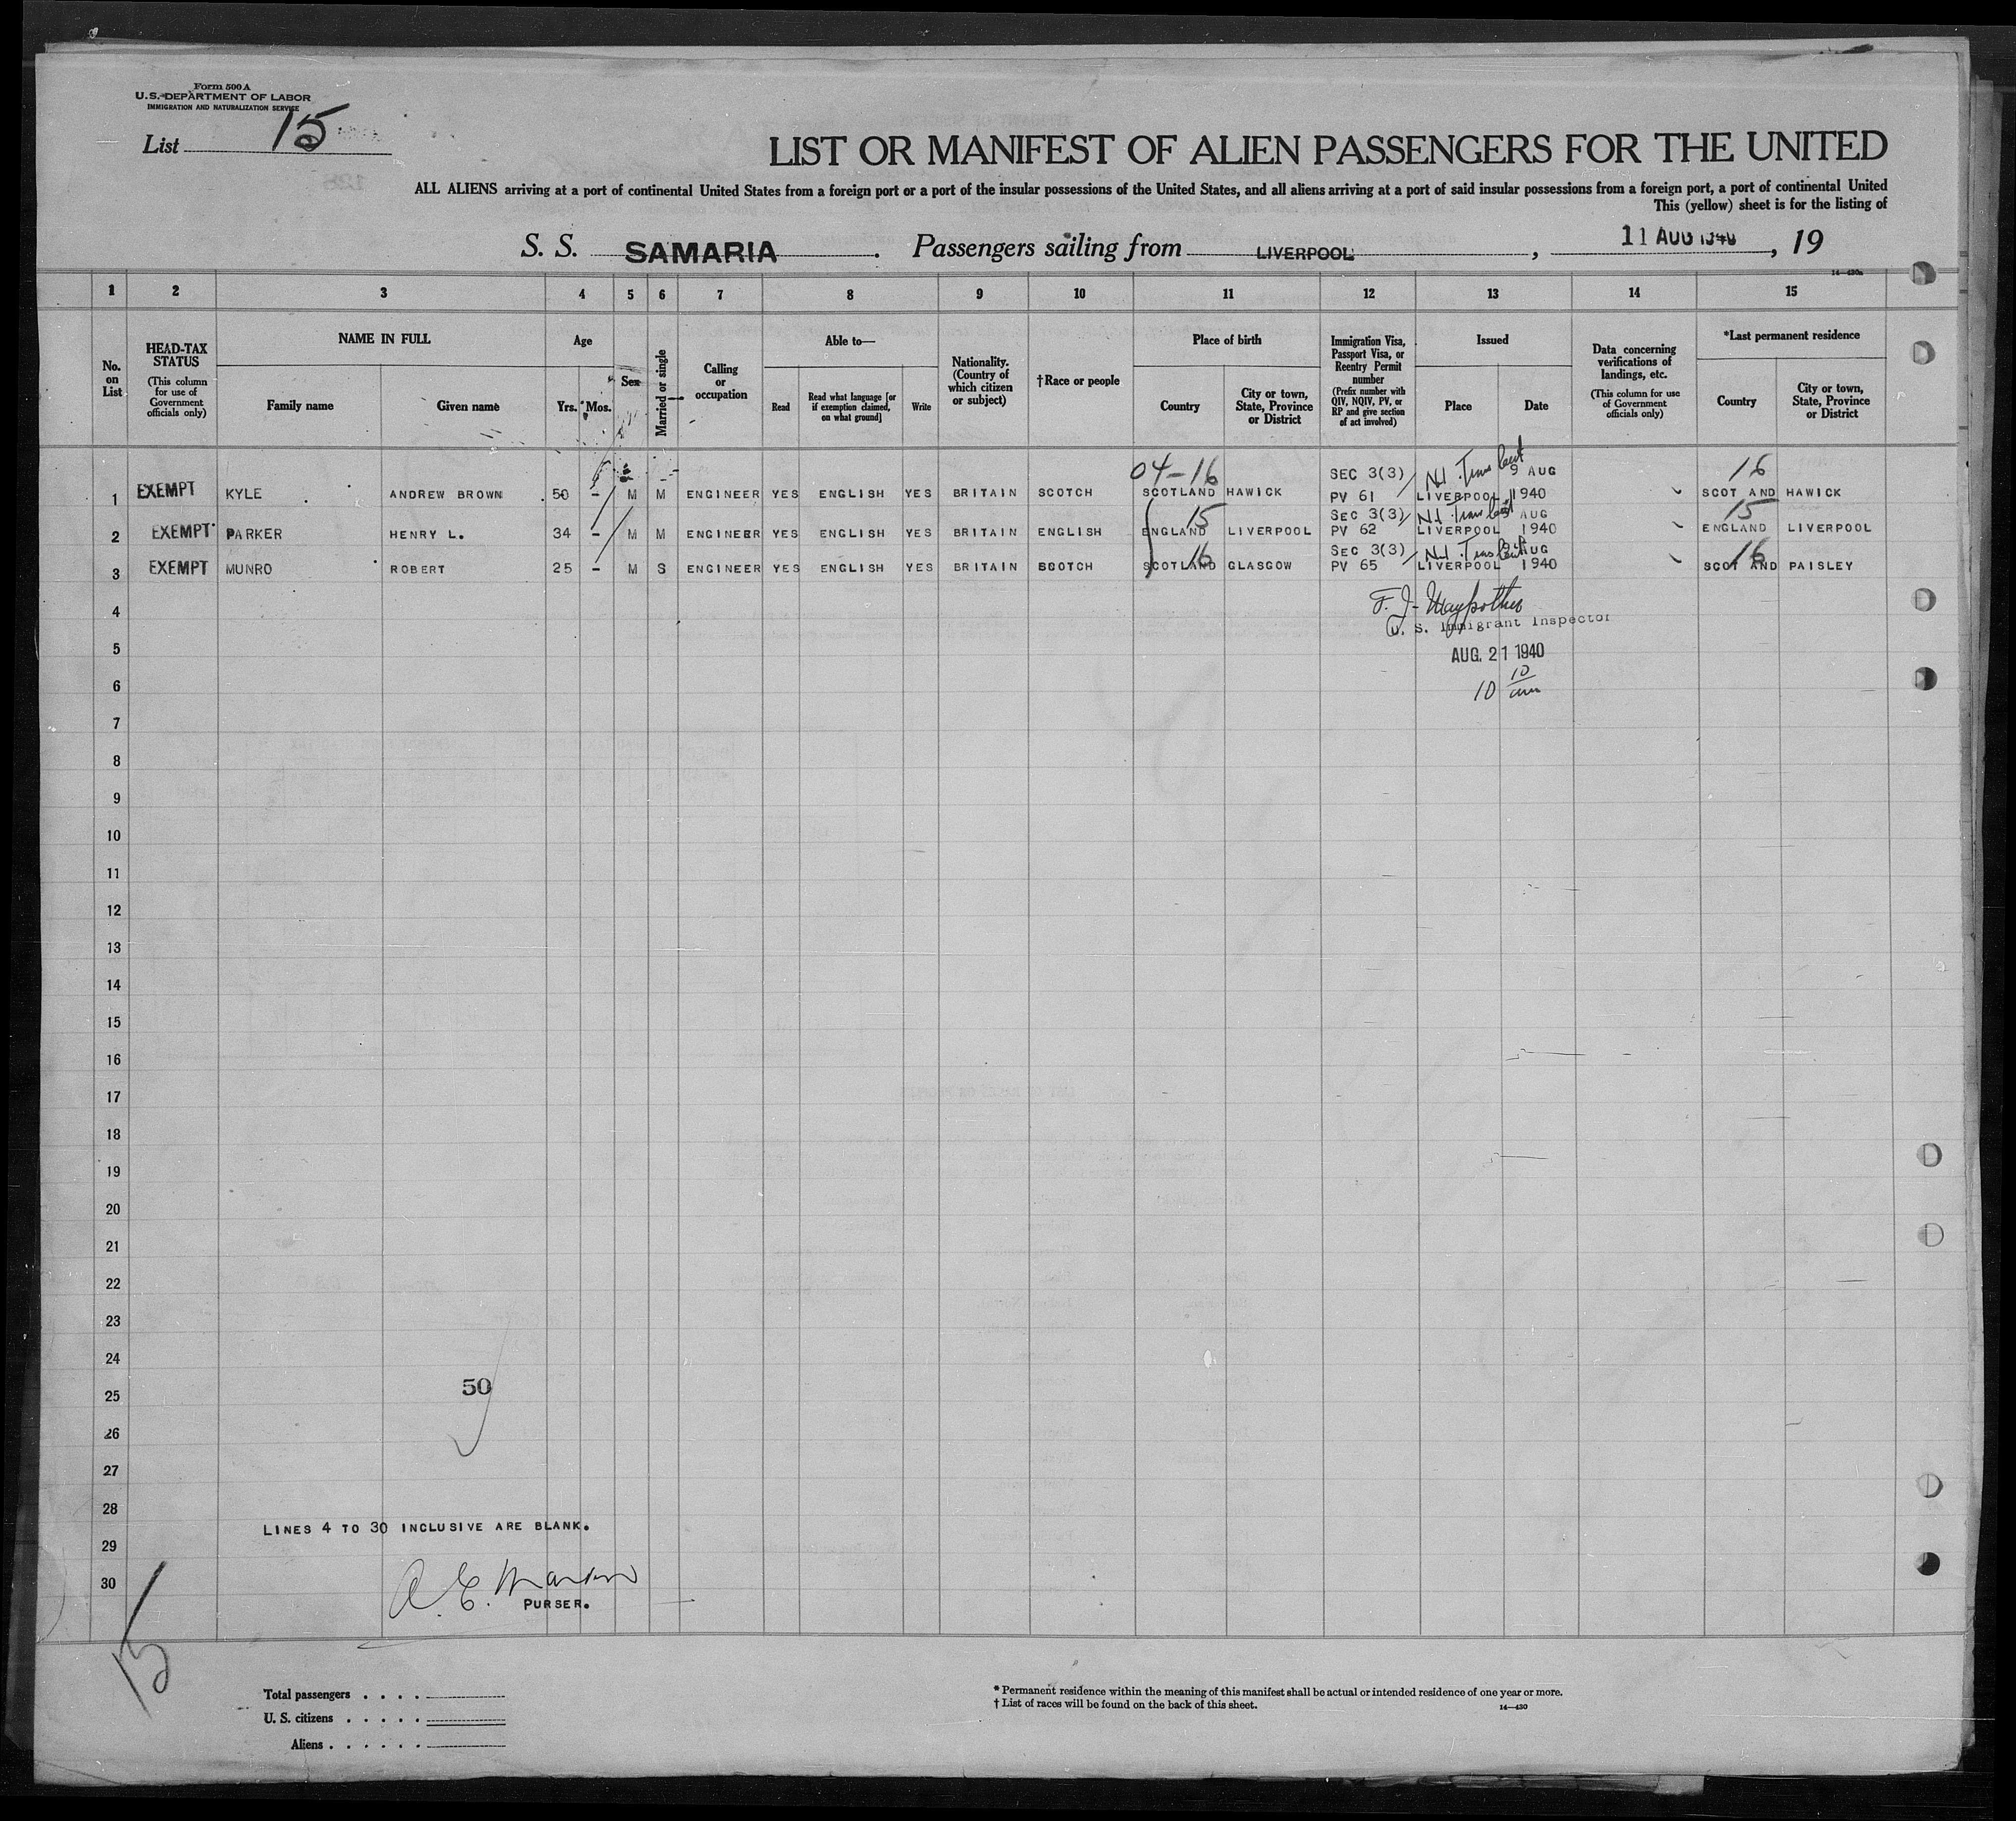 Form 500 A
U.S. DEPARTMENT OF LABOR
IMMIGRATION AND NATURALIZATION SERVICE
List 15
LIST OR MANIFEST OF ALIEN PASSENGERS FOR THE UNITED
ALL ALIENS arriving at a port of continental United States from a foreign port or a port of the insular possessions of the United States, and all aliens arriving at a port of said insular possessions from a foreign port, a port of continental United
This (yellow) sheet is for the listing of
S. S. SAMARIA. Passengers sailing from LIVERPOOL, 11 AUG 1940, 19
14—430a
1 2 3 4 5 6 7 8 9 10 11 12 13 14 15
No. on List
HEAD-TAX STATUS
(This column for use of Government officials only)
NAME IN FULL
Family name
Given name
Age
Yrs. Mos.
Sex
Married or single
Calling or occupation
Able to—
Read
Read what language [or if exemption claimed, on what ground]
Write
Nationality. (Country of which citizen or subject)
†Race or people
Place of birth
Country
City or town, State, Province or District
Immigration Visa, Passport Visa, or Reentry Permit number
(Prefix number with QIV, NQIV, PV, or RP and give section of act involved)
Issued
Place
Date
Data concerning verifications of landings, etc.
(This column for use of Government officials only)
*Last permanent residence
Country
City or town, State, Province or District
04-16 SEC 3(3) 9 AUG 16
1 EXEMPT KYLE ANDREW BROWN 50 - M M ENGINEER YES ENGLISH YES BRITAIN SCOTCH SCOTLAND HAWICK PV 61 LIVERPOOL 1940 SCOT AND HAWICK
15 SEC 3(3) AUG 15
2 EXEMPT PARKER HENRY L. 34 - M M ENGINEER YES ENGLISH YES BRITAIN ENGLISH ENGLAND LIVERPOOL PV 62 LIVERPOOL 1940 ENGLAND LIVERPOOL
16 SEC 3(3) AUG 16
3 EXEMPT MUNRO ROBERT 25 - M S ENGINEER YES ENGLISH YES BRITAIN SCOTCH SCOTLAND GLASGOW PV 65 LIVERPOOL 1940 SCOT AND PAISLEY
4
F. J.
U. S. Immigrant Inspector
5
AUG. 21 1940
6
10 10/am
7
8
9
10
11
12
13
14
15
16
17
18
19
20
21
22
23
24
25 50
26
27
28
LINES 4 TO 30 INCLUSIVE ARE BLANK.
29
30
PURSER.
15
Total passengers . . . .
U. S. citizens . . . . .
Aliens . . . . . .
* Permanent residence within the meaning of this manifest shall be actual or intended residence of one year or more.
† List of races will be found on the back of this sheet.
14—430